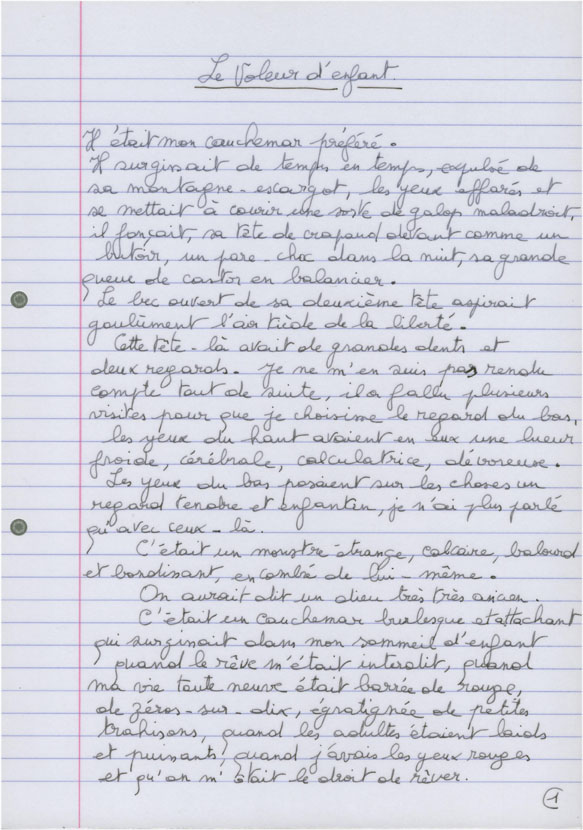 Le Voleur d'enfant.
Il était mon cauchemar préféré.
Il surgissait de temps en temps, expulsé de
sa montagne-escargot, les yeux effarés et
se mettait à courir une sorte de galop maladroit,
il fonçait, sa tête de crapaud devant comme un
butoir, un pare-choc dans la nuit, sa grande
queue de castor en balancier.
Le bec ouvert de sa deuxième tête aspirait
goulûment l'air tiède de la liberté.
Cette tête-là avait de grandes dents et
deux regards. Je ne m'en suis pas rendu
compte tout de suite, il a fallu plusieurs
visites pour que je choisisse le regard du bas,
les yeux du haut avaient en eux une lueur
froide, cérébrale, calculatrice, dévoreuse.
Les yeux du bas posaient sur les choses un
regard tendre et enfantin, je n'ai plus parlé
qu'avec ceux-là.
C'était un monstre étrange, calcaire, balourd
et bondissant, encombré de lui-même.
On aurait dit un dieu très très ancien.
C'était un cauchemar burlesque et attachant
qui surgissait dans mon sommeil d'enfant
quand le rêve m'était interdit, quand
ma vie toute neuve était barrée de rouge,
de zéros-sur-dix, égratignée de petites
trahisons, quand les adultes étaient laids
et puissants, quand j'avais les yeux rouges
et qu'on m'ôtait le droit de rêver.
1